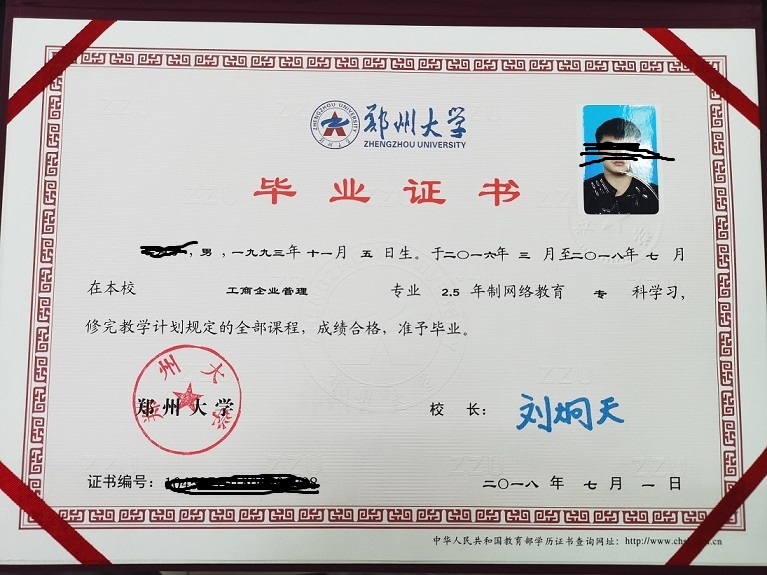 郑州大学
ZHENGZHOU UNIVERSITY
毕业证书
，男，一九九三年十一月五日生。于二〇一六年三月至二〇一八年七月
在本校 工商企业管理 专业 2.5 年制网络教育 专 科学习，
修完教学计划规定的全部课程，成绩合格，准予毕业。
郑州大学
郑州大学 校 长： 刘炯天
证书编号： 二〇一八年 七 月 一 日
中华人民共和国教育部学历证书查询网址：http://www.ch